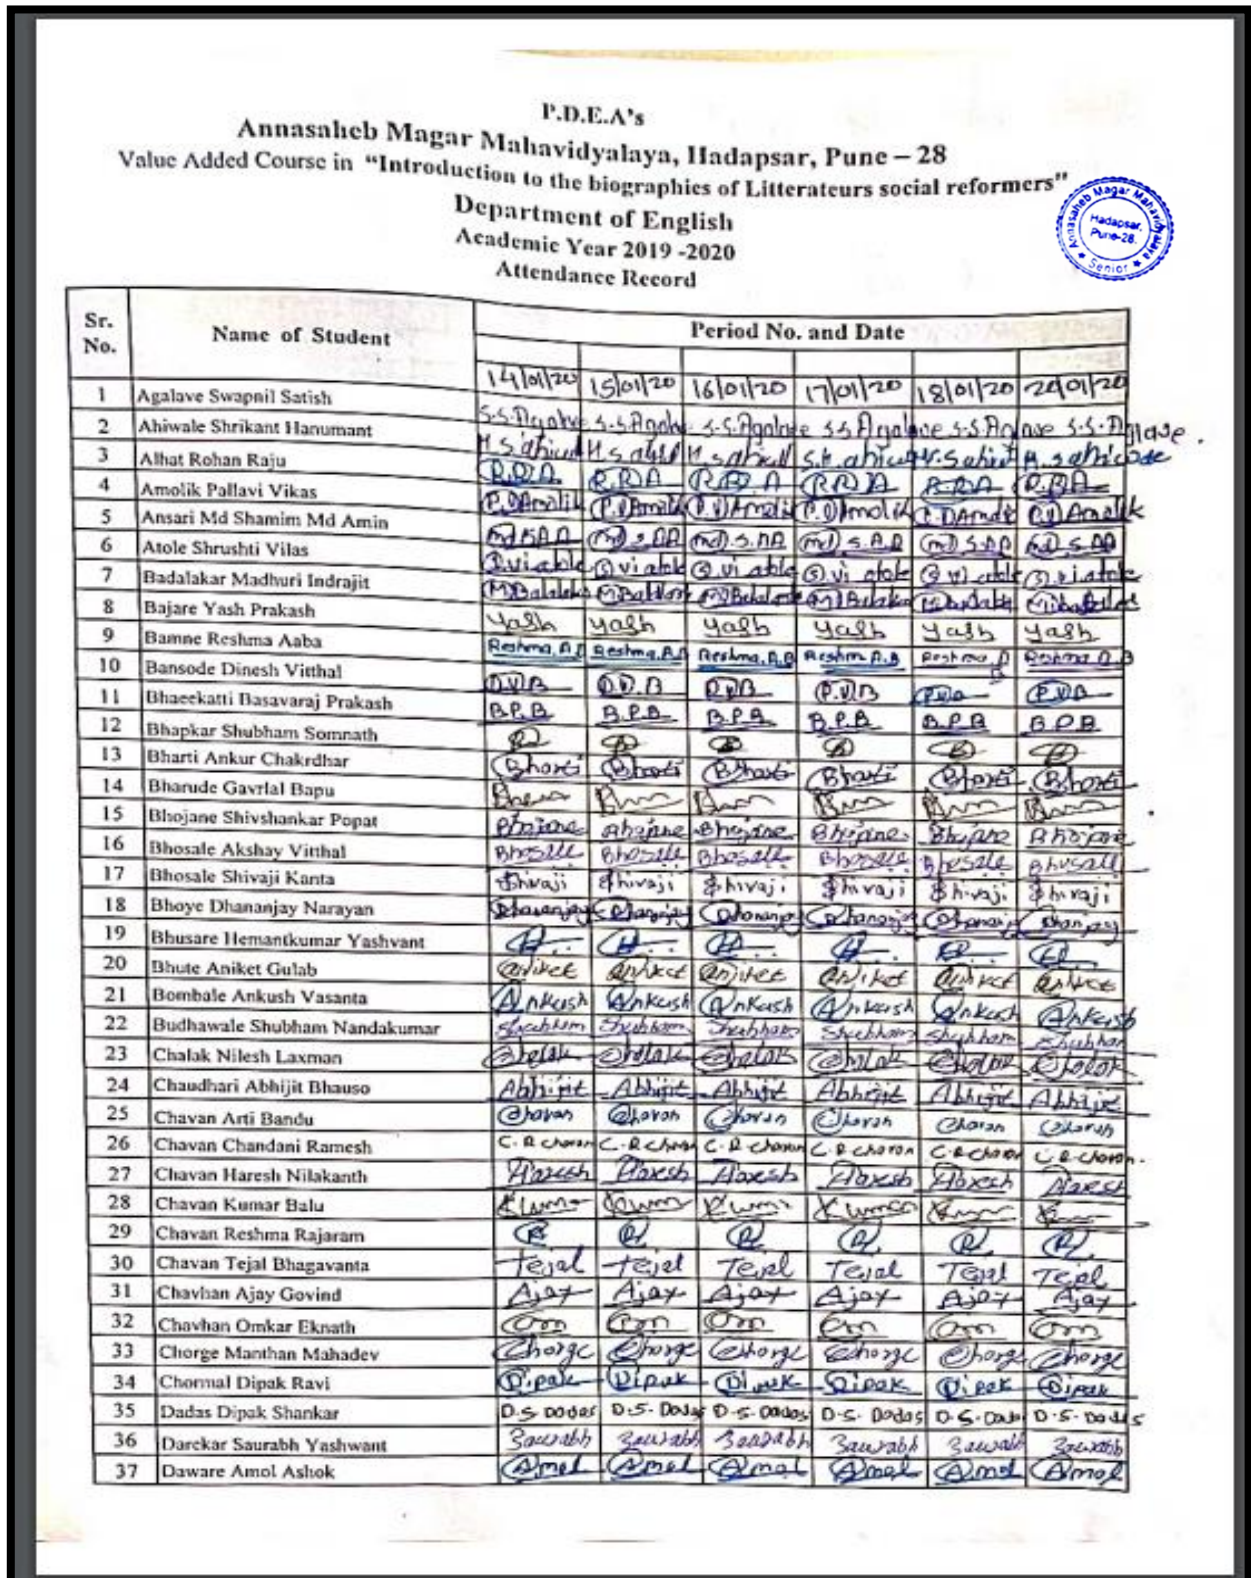 P.D.E.A's
Annasaheb Magar Mahavidyalaya, Hadapsar, Pune – 28
Value Added Course in "Introduction to the biographies of Litterateurs social reformers"
Department of English
Academic Year 2019 -2020
Attendance Record
Annasaheb Magar Mahavidyalaya
Hadapsar,
Pune-28.
★ Senior ★
Sr. No. Name of Student Period No. and Date
14/01/20 15/01/20 16/01/20 17/01/20 18/01/20 20/01/20
1 Agalave Swapnil Satish
2 Ahiwale Shrikant Hanumant
3 Alhat Rohan Raju R.R.A R.R.A R.R.A R.R.A R.R.A R.R.A
4 Amolik Pallavi Vikas
5 Ansari Md Shamim Md Amin
6 Atole Shrushti Vilas
7 Badalakar Madhuri Indrajit
8 Bajare Yash Prakash Yash Yash Yash Yash Yash Yash
9 Bamne Reshma Aaba Reshma.A.B Reshma.A.B Reshma.A.B Reshma A.B Reshma A B Reshma A.B
10 Bansode Dinesh Vitthal
11 Bhaeekatti Basavaraj Prakash B.P.B B.P.B B.P.B B.P.B B.P.B B.P.B
12 Bhapkar Shubham Somnath
13 Bharti Ankur Chakrdhar Bharti Bharti Bharti Bharti Bharti Bharti
14 Bharude Gavrlal Bapu
15 Bhojane Shivshankar Popat Bhojane Bhojane Bhojane Bhojane Bhojane Bhojane
16 Bhosale Akshay Vitthal Bhosale Bhosale Bhosale Bhosale Bhosale Bhosale
17 Bhosale Shivaji Kanta Shivaji Shivaji Shivaji Shivaji Shivaji Shivaji
18 Bhoye Dhananjay Narayan
19 Bhusare Hemantkumar Yashvant
20 Bhute Aniket Gulab Aniket Aniket Aniket Aniket Aniket Aniket
21 Bombale Ankush Vasanta Ankush Ankush Ankush Ankush Ankush Ankush
22 Budhawale Shubham Nandakumar Shubham Shubham Shubham Shubham Shubham Shubham
23 Chalak Nilesh Laxman Chalak Chalak Chalak Chalak Chalak Chalak
24 Chaudhari Abhijit Bhauso Abhijit Abhijit Abhijit Abhijit Abhijit Abhijit
25 Chavan Arti Bandu Chavan Chavan Chavan Chavan Chavan Chavan
26 Chavan Chandani Ramesh C.R chavan C.R chavan C.R chavan C.R chavan C.R chavan C.R chavan.
27 Chavan Haresh Nilakanth Haresh Haresh Haresh Haresh Haresh Haresh
28 Chavan Kumar Balu
29 Chavan Reshma Rajaram
30 Chavan Tejal Bhagavanta Tejal Tejal Tejal Tejal Tejal Tejal
31 Chavhan Ajay Govind Ajay Ajay Ajay Ajay Ajay Ajay
32 Chavhan Omkar Eknath Om Om Om Om Om Om
33 Chorge Manthan Mahadev Chorge Chorge Chorge Chorge Chorge Chorge
34 Chormal Dipak Ravi Dipak Dipak Dipak Dipak Dipak Dipak
35 Dadas Dipak Shankar D.S Dadas D.S. Dadas D.S. Dadas D.S. Dadas D.S. Dadas D.S. Dadas
36 Darekar Saurabh Yashwant Saurabh Saurabh Saurabh Saurabh Saurabh Saurabh
37 Daware Amol Ashok Amol Amol Amol Amol Amol Amol